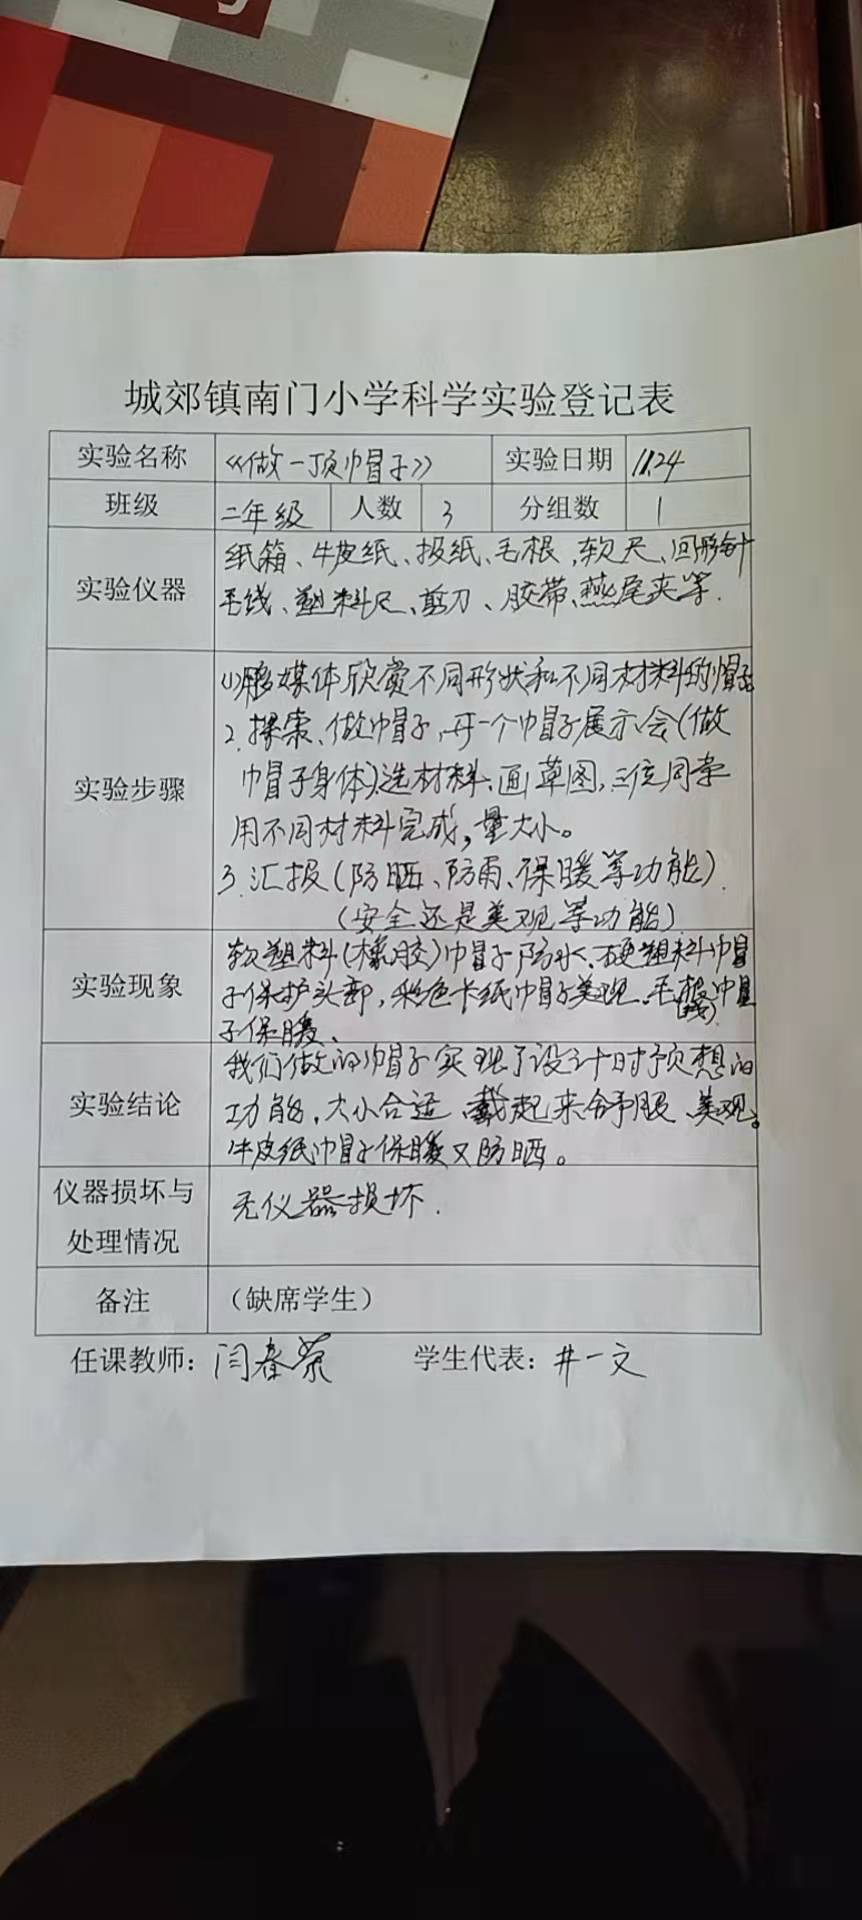 城郊镇南门小学科学实验登记表
实验名称 《做一顶帽子》 实验日期 11.24
班级 二年级 人数 3 分组数 1
实验仪器
纸箱、牛皮纸、报纸、毛根、软尺、回形针
毛线、塑料尺、剪刀、胶带、燕尾夹等.
实验步骤
(1)多媒体欣赏不同形状和不同材料的帽子
2.探索、做帽子,开一个帽子展示会(做
帽子身体)选材料、画草图,三位同学
用不同材料完成,量大小。
3.汇报(防晒、防雨、保暖等功能).
(安全还是美观等功能)
实验现象
软塑料(橡胶)帽子防水、硬塑料帽
子保护头部,彩色卡纸帽子美观、毛线帽
子保暖、
实验结论
我们做的帽子实现了设计时预想的
功能,大小合适、戴起来舒服、美观。
牛皮纸帽子保暖又防晒。
仪器损坏与
处理情况
无仪器损坏.
备注 (缺席学生)
任课教师:闫春荣 学生代表:井一文